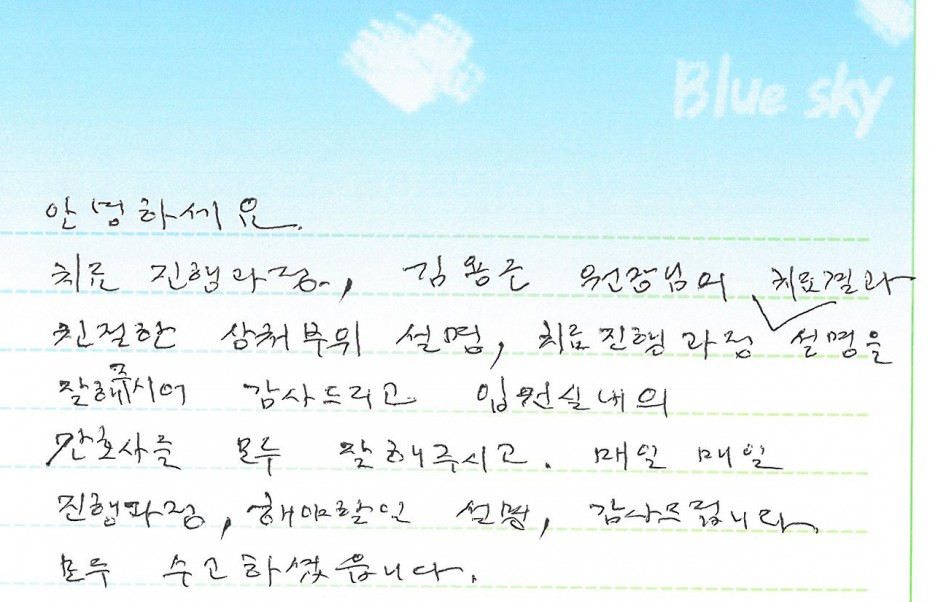 Blue sky
안녕하세요.
치료 진행과정, 김용근 원장님의 치료결과
친절한 상처부위 설명, 치료진행 과정 설명을
잘해주시어 감사드리고 입원실내의
간호사들 모두 잘해주시고. 매일 매일
진행과정, 해야할일 설명, 감사드립니다.
모두 수고하셨읍니다.